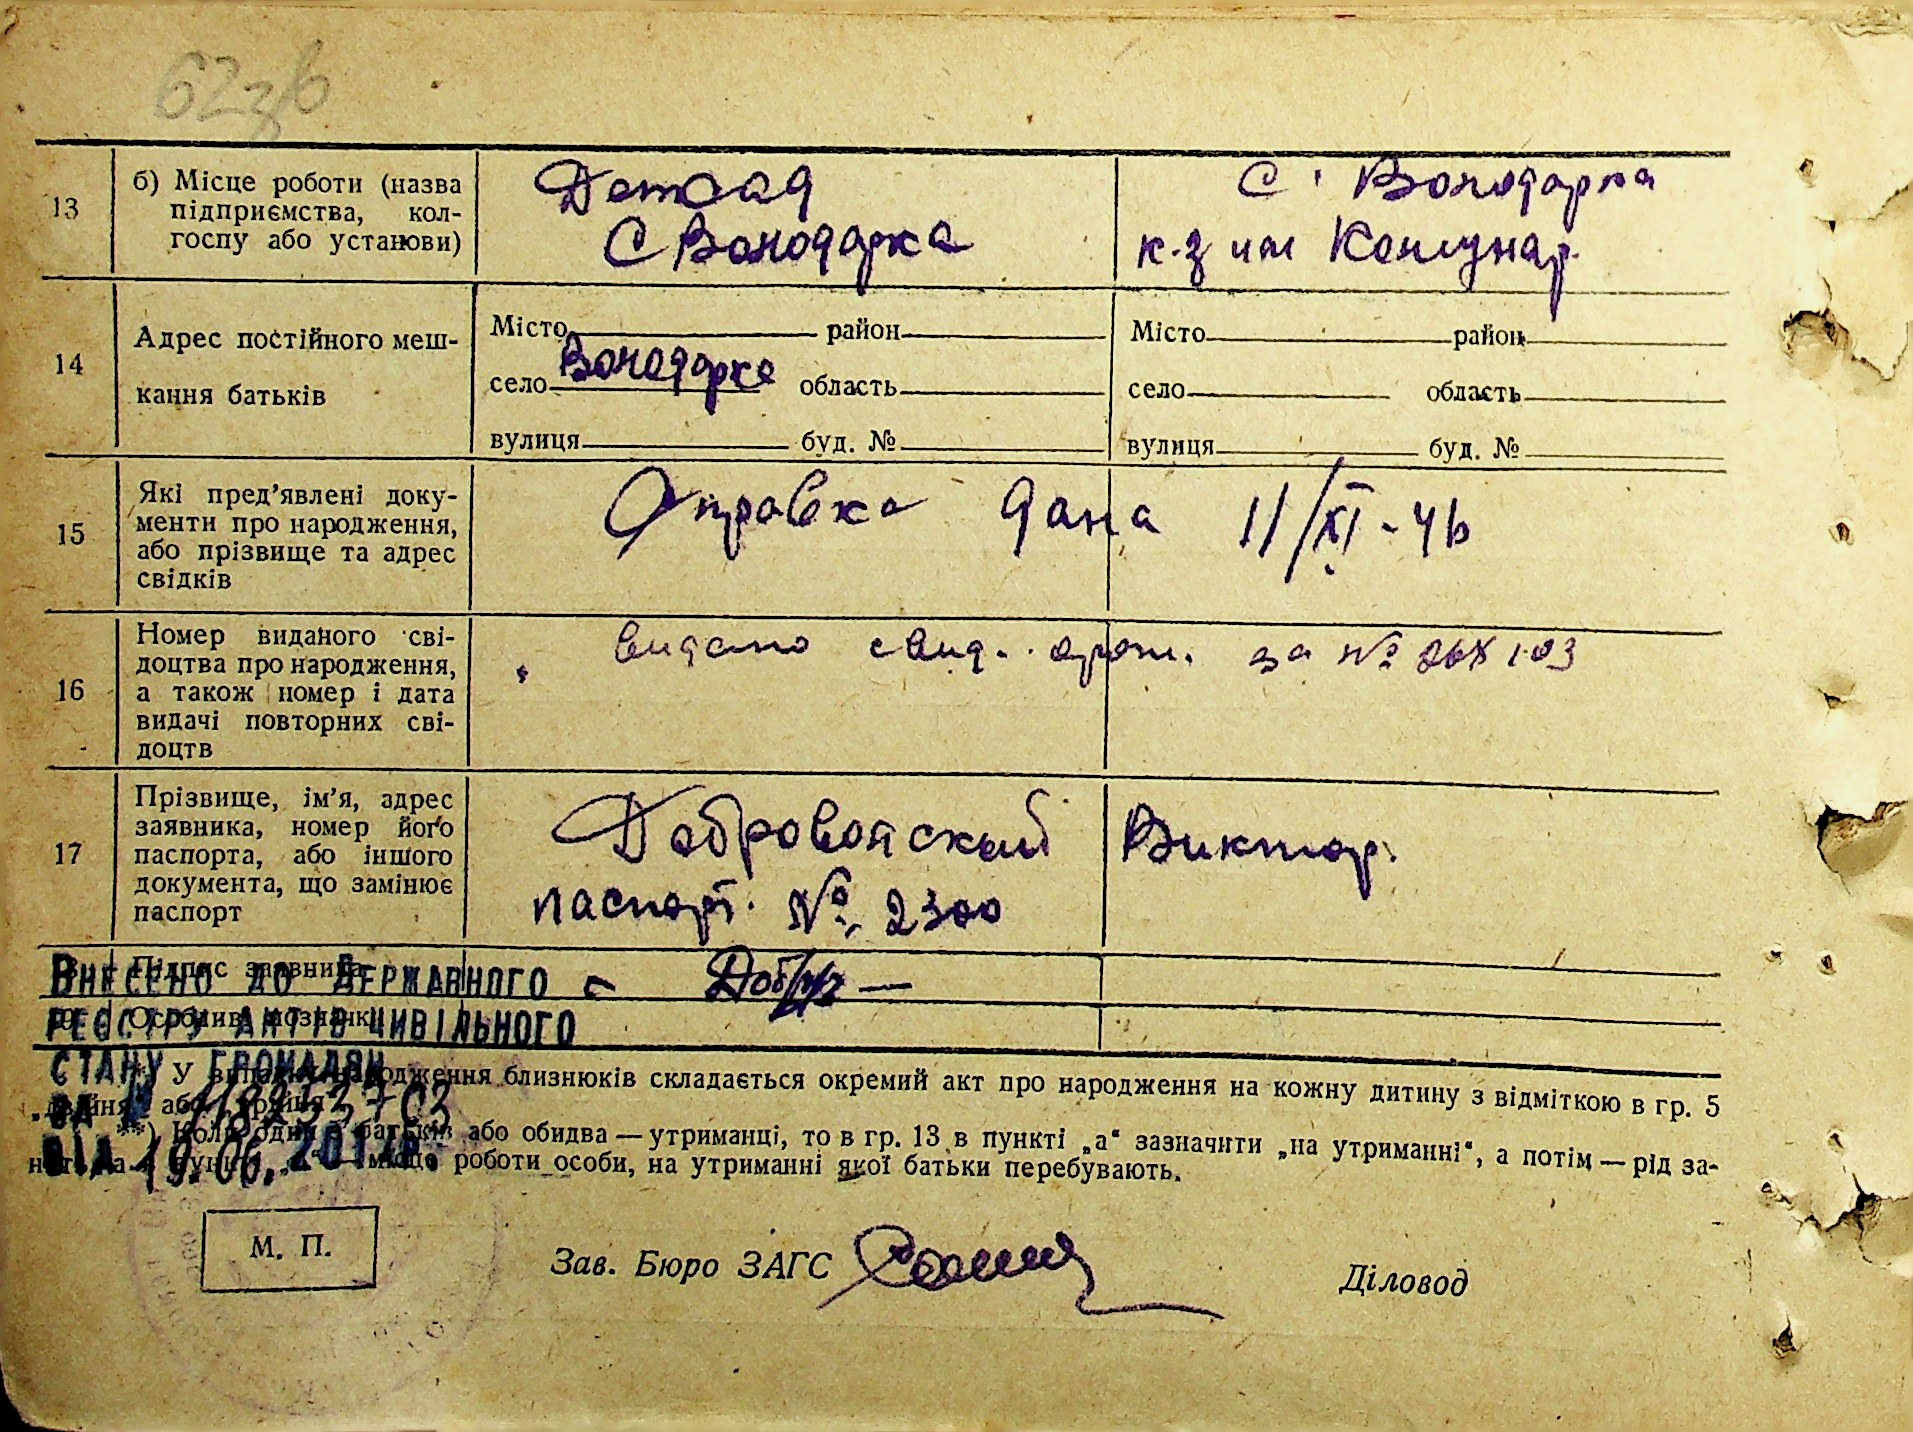 62зв
13
б) Місце роботи (назва
підприємства, кол-
госпу або установи)
Детсад
С Володарка
с. Володарка
к.з им Комунар.
14
Адрес постійного меш-
кання батьків
Місто район
село Володарка область
вулиця буд. №
Місто район
село область
вулиця буд. №
15
Які пред'явлені доку-
менти про народження,
або прізвище та адрес
свідків
Справка дана 11/XI-46
16
Номер виданого сві-
доцтва про народження,
а також номер і дата
видачі повторних сві-
доцтв
видано свид. за №
17
Прізвище, ім'я, адрес
заявника, номер його
паспорта, або іншого
документа, що замінює
паспорт
Добровольский Виктор.
паспорт. № 2300
Підпис заявника
Особливі позначки
ВНЕСЕНО ДО ДЕРЖАВНОГО
РЕЄСТРУ АКТІВ ЦИВІЛЬНОГО
СТАНУ ГРОМАДЯН
ЗА №
ВІД 19.06.2012Р.
*) У випадку народження близнюків складається окремий акт про народження на кожну дитину з відміткою в гр. 5
„двійня" або „трійня"
**) Коли один з батьків або обидва — утриманці, то в гр. 13 в пункті „а" зазначити „на утриманні", а потім — рід за-
місце роботи особи, на утриманні якої батьки перебувають.
М. П.
Зав. Бюро ЗАГС
Діловод